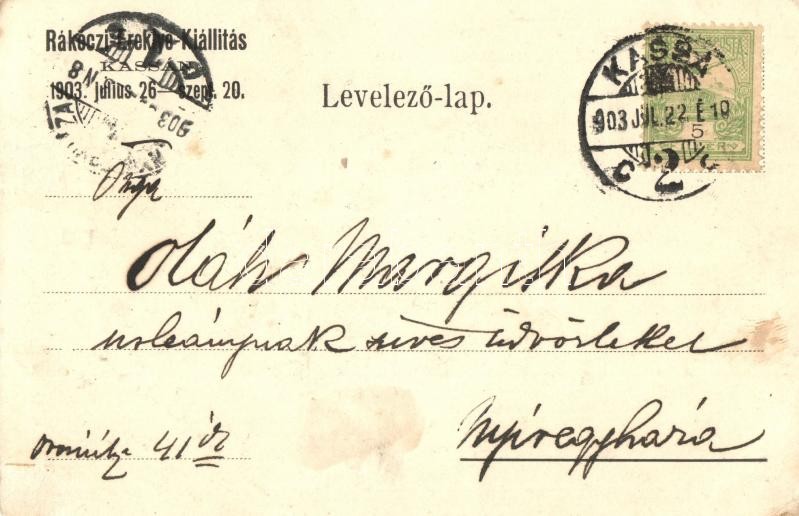 Rákóczi-Ereklye-Kiállítás
KASSÁN
1903. július 26—szept. 20.
Levelező-lap.
KASSA
903 JUL. 22 É 10
2
5
903
N 8
Oláh Margitka
urleánynak szives üdvözletek
41
Nyíregyháza